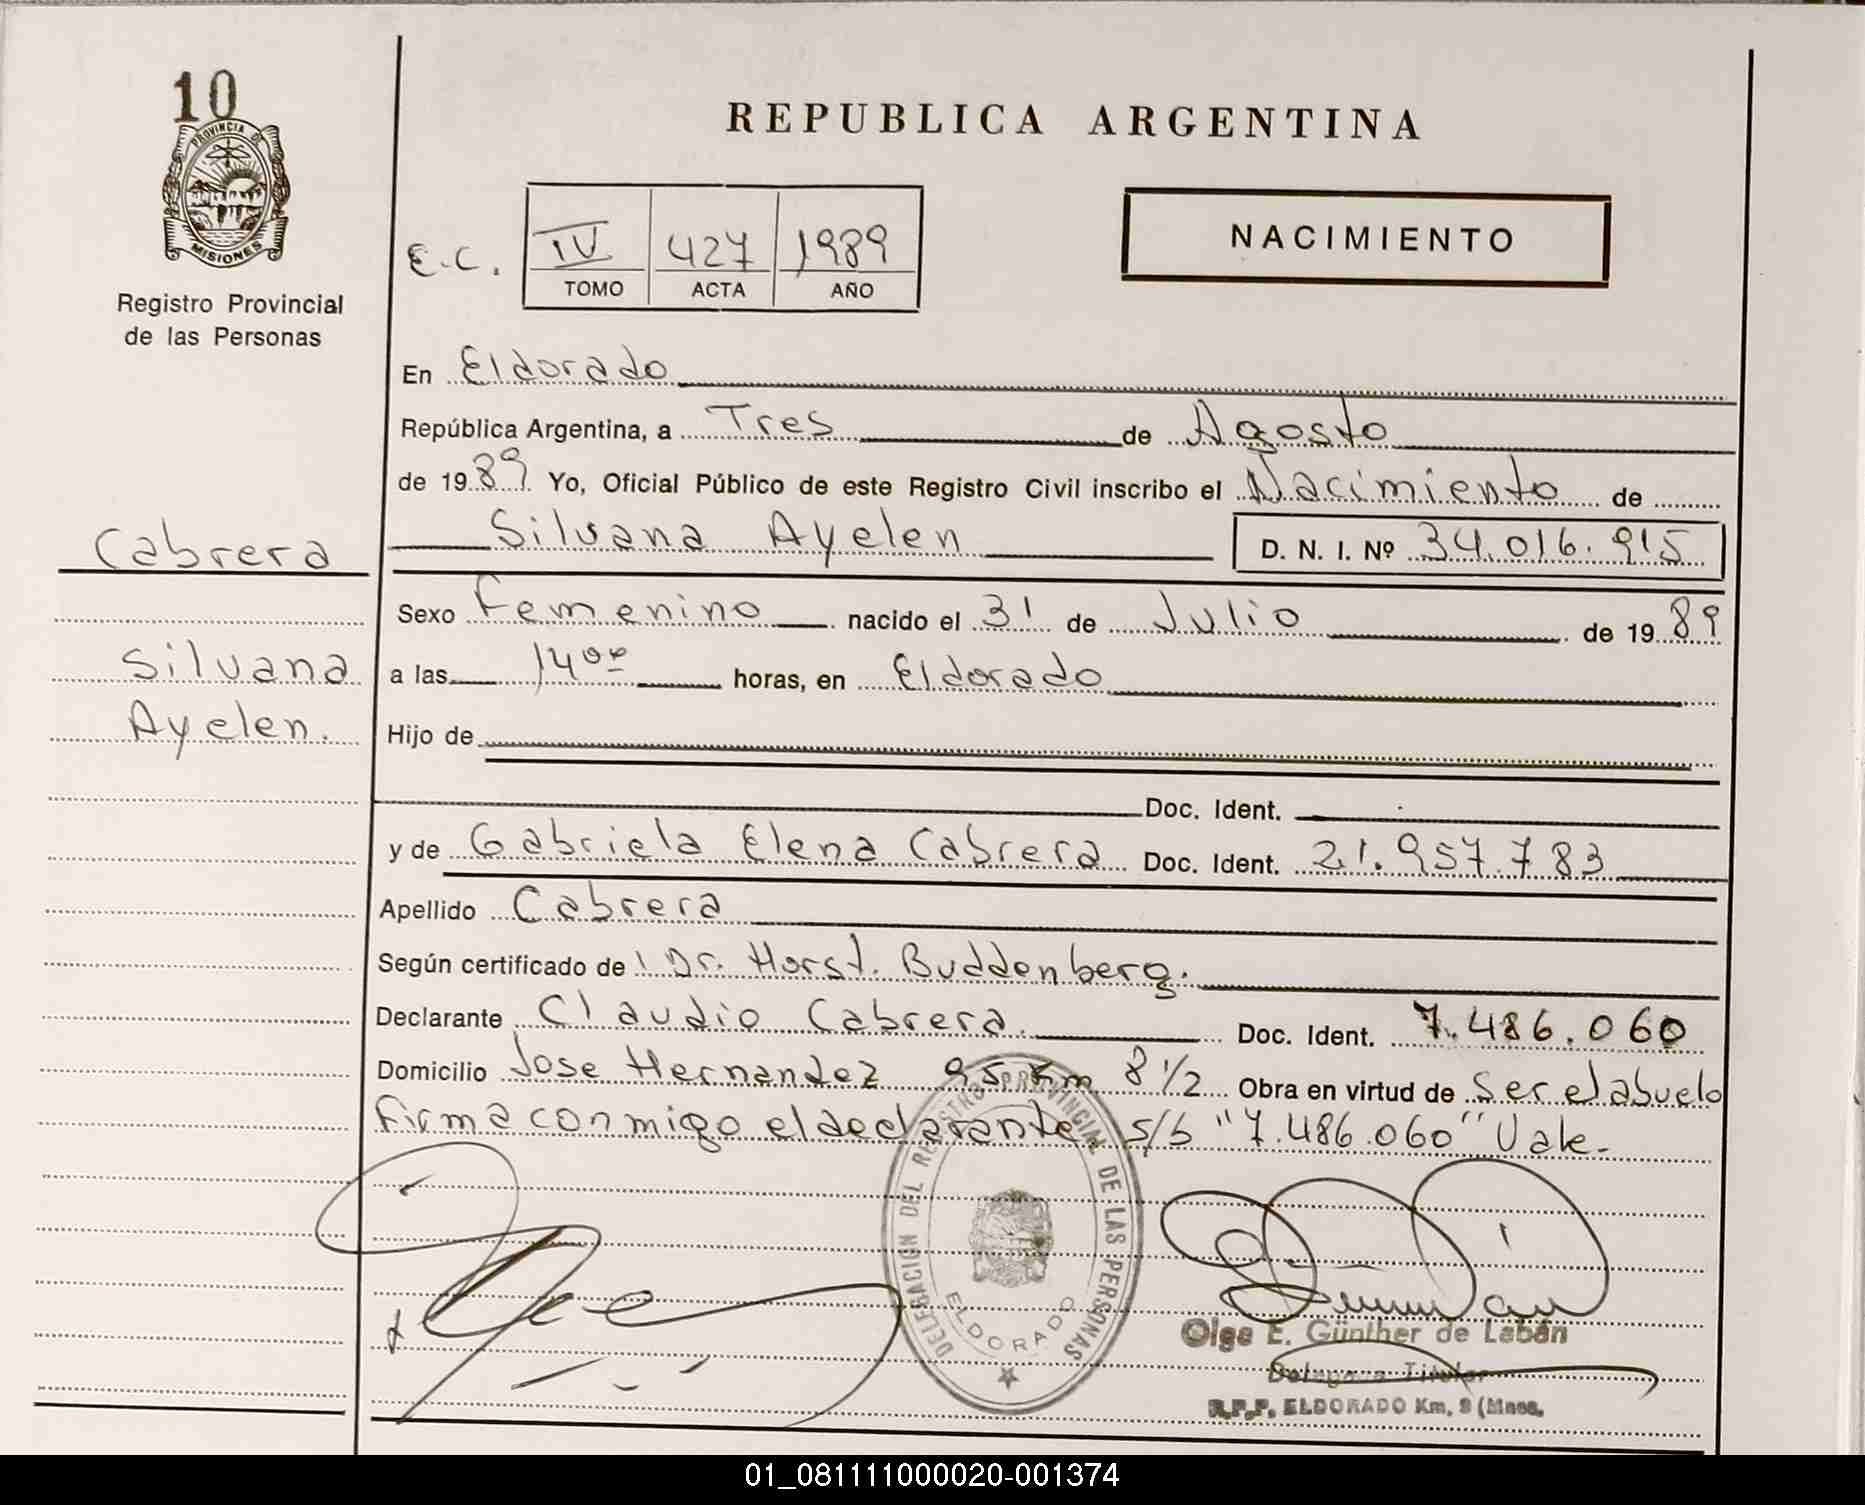 10
PROVINCIA DE
MISIONES
Registro Provincial
de las Personas
REPUBLICA ARGENTINA
E.C.
IV 427 1989
TOMO ACTA AÑO
NACIMIENTO
En Eldorado
República Argentina, a Tres de Agosto
de 1989 Yo, Oficial Público de este Registro Civil inscribo el Nacimiento de
Silvana Ayelen D. N. I. Nº 34.016.915
Cabrera
Silvana
Ayelen.
Sexo Femenino nacido el 31 de Julio de 1989
a las 14 00 horas, en Eldorado
Hijo de
Doc. Ident.
y de Gabriela Elena Cabrera Doc. Ident. 21.957.783
Apellido Cabrera
Según certificado de Dr. Horst. Buddenberg.
Declarante Claudio Cabrera. Doc. Ident. 7.486.060
Domicilio Jose Hernandez 95 Km 8 1/2 Obra en virtud de Ser el abuelo
Firma conmigo el declarante s/b "7.486.060" Vale.
DELEGACION DEL REGISTRO PROVINCIAL DE LAS PERSONAS
ELDORADO
Olga E. Günther de Labán
Delegada Titular
R.P.P. ELDORADO Km. 9 (Mnes.
01_081111000020-001374